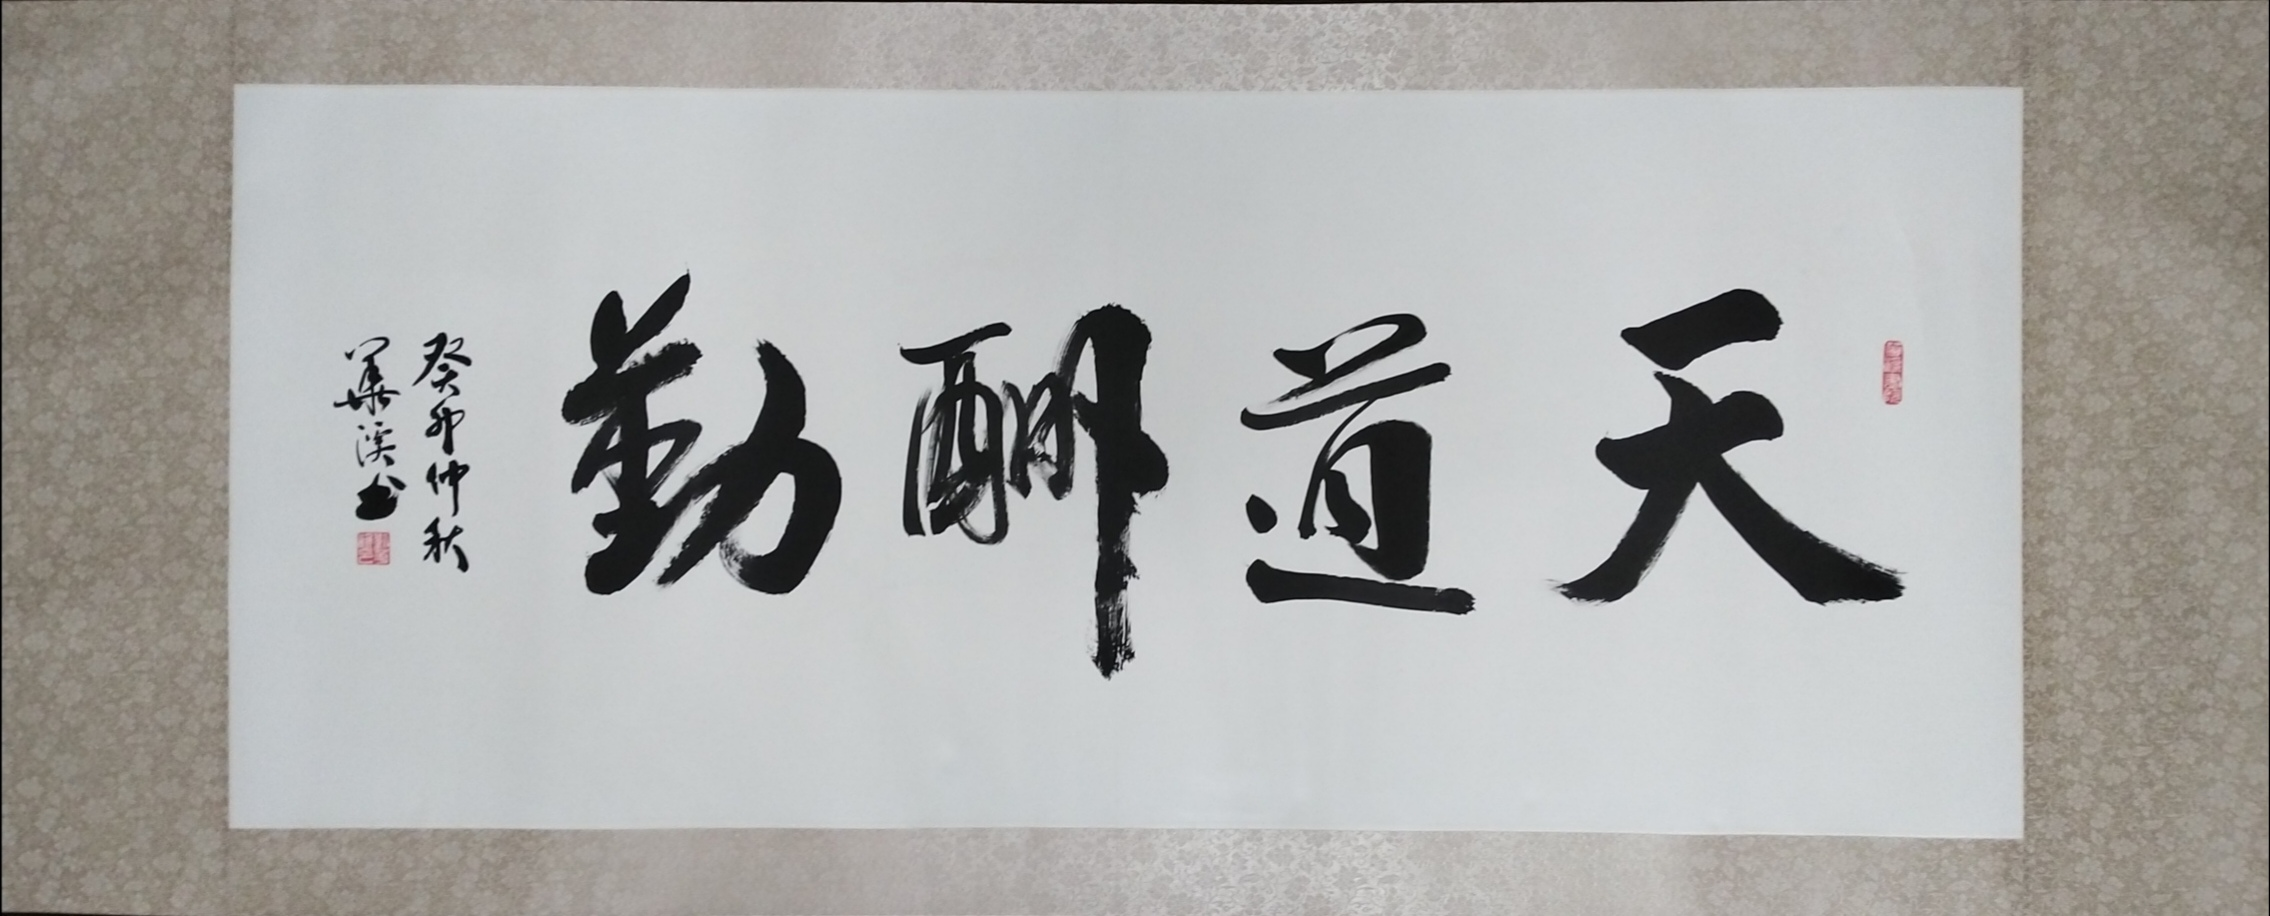 天道酬勤
癸卯仲秋
華溪书